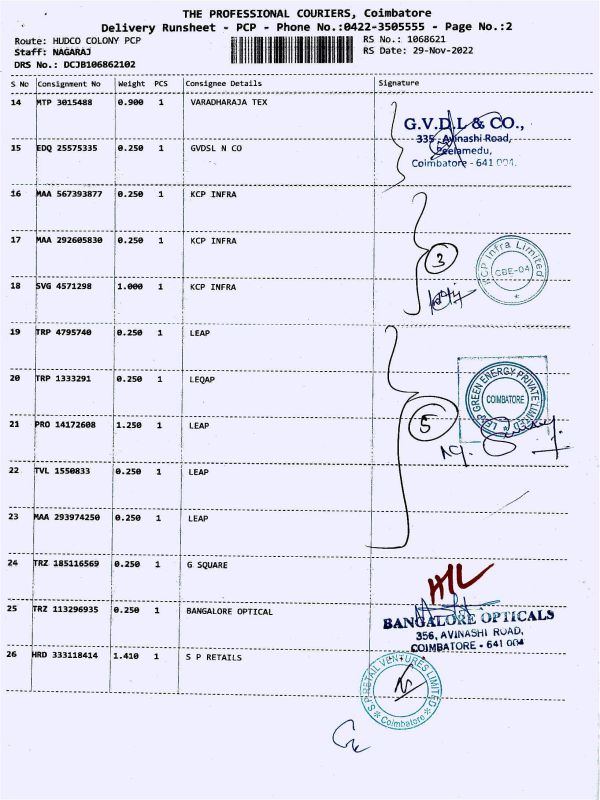 THE PROFESSIONAL COURIERS, Coimbatore
Delivery Runsheet - PCP - Phone No.:0422-3505555 - Page No.:2
Route: HUDCO COLONY PCP
RS No.: 1068621
Staff: NAGARAJ
RS Date: 29-Nov-2022
DRS No.: DCJB106862102
S No Consignment No Weight PCS Consignee Details Signature
14 MTP 3015488 0.900 1 VARADHARAJA TEX
G.V.D.L & CO.,
335, Avinashi Road,
Peelamedu,
Coimbatore - 641 004.
15 EDQ 25575335 0.250 1 GVDSL N CO
16 MAA 567393877 0.250 1 KCP INFRA
17 MAA 292605830 0.250 1 KCP INFRA
3
KCP Infra Limited
CBE-04
18 SVG 4571298 1.000 1 KCP INFRA
19 TRP 4795740 0.250 1 LEAP
20 TRP 1333291 0.250 1 LEQAP
LEAP GREEN ENERGY PRIVATE LIMITED
COIMBATORE
21 PRO 14172608 1.250 1 LEAP
5
22 TVL 1550833 0.250 1 LEAP
23 MAA 293974250 0.250 1 LEAP
24 TRZ 185116569 0.250 1 G SQUARE
H/L
25 TRZ 113296935 0.250 1 BANGALORE OPTICAL
BANGALORE OPTICALS
356, AVINASHI ROAD,
COIMBATORE - 641 004
26 HRD 333118414 1.410 1 S P RETAILS
S P RETAIL VENTURES LIMITED
Coimbatore